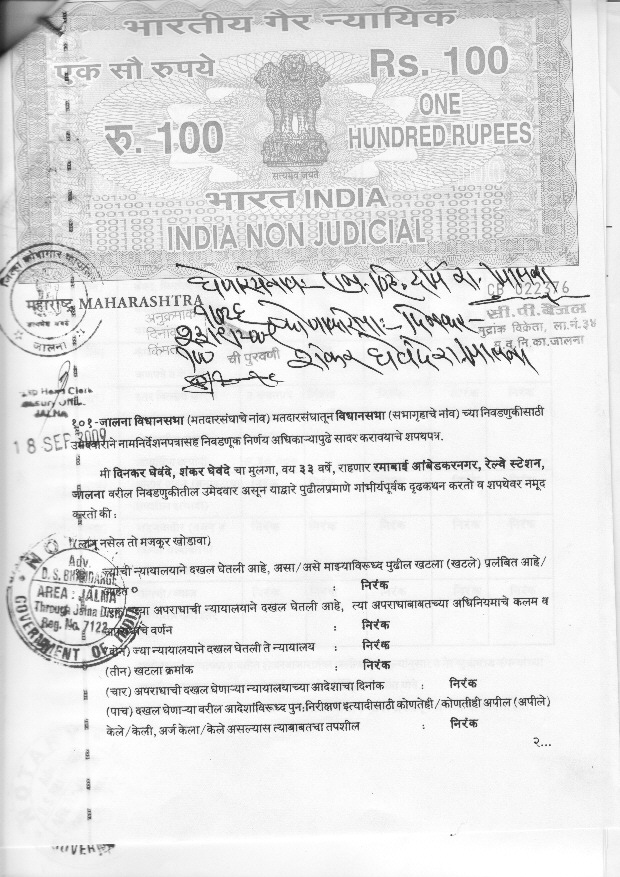 भारतीय गैर न्यायिक
एक सौ रुपये
Rs. 100
रु. 100
ONE
HUNDRED RUPEES
सत्यमेव जयते
भारत INDIA
INDIA NON JUDICIAL
महाराष्ट्र MAHARASHTRA
CB 022376
अनुक्रमांक
दिनांक
किंमत
ची पुरवणी
सी.पी.बैजल
मुद्रांक विक्रेता, ला.नं.३४
जालना
Head Clerk
JALNA
18 SEP 2009
१०१-जालना विधानसभा (मतदारसंघाचे नांव) मतदारसंघातून विधानसभा (सभागृहाचे नांव) च्या निवडणुकीसाठी
उमेदवाराने नामनिर्देशनपत्रासह निवडणूक निर्णय अधिकाऱ्यापुढे सादर करावयाचे शपथपत्र.
मी दिनकर घेवंदे, शंकर घेवंदे चा मुलगा, वय ३३ वर्षे, राहणार रमाबाई आंबेडकरनगर, रेल्वे स्टेशन,
जालना वरील निवडणुकीतील उमेदवार असून याद्वारे पुढीलप्रमाणे गांभीर्यपूर्वक दृढकथन करतो व शपथेवर नमूद
करतो की :
(लागू नसेल तो मजकूर खोडावा)
ज्यांची न्यायालयाने दखल घेतली आहे, असा/असे माझ्याविरुध्द पुढील खटला (खटले) प्रलंबित आहे/
आहेत : निरंक
ज्या अपराधाची न्यायालयाने दखल घेतली आहे, त्या अपराधाबाबतच्या अधिनियमाचे कलम व
अपराधाचे वर्णन : निरंक
(दोन) ज्या न्यायालयाने दखल घेतली ते न्यायालय : निरंक
(तीन) खटला क्रमांक : निरंक
(चार) अपराधाची दखल घेणाऱ्या न्यायालयाच्या आदेशाचा दिनांक : निरंक
(पाच) दखल घेणाऱ्या वरील आदेशांविरुध्द पुन:निरीक्षण इत्यादीसाठी कोणतेही/कोणतीही अपील (अपीले)
केले/केली, अर्ज केला/केले असल्यास त्याबाबतचा तपशील : निरंक
२...
Adv.
AREA : JALNA
Through Jalna Dist.
Reg. No. 7122
GOVERNMENT OF INDIA